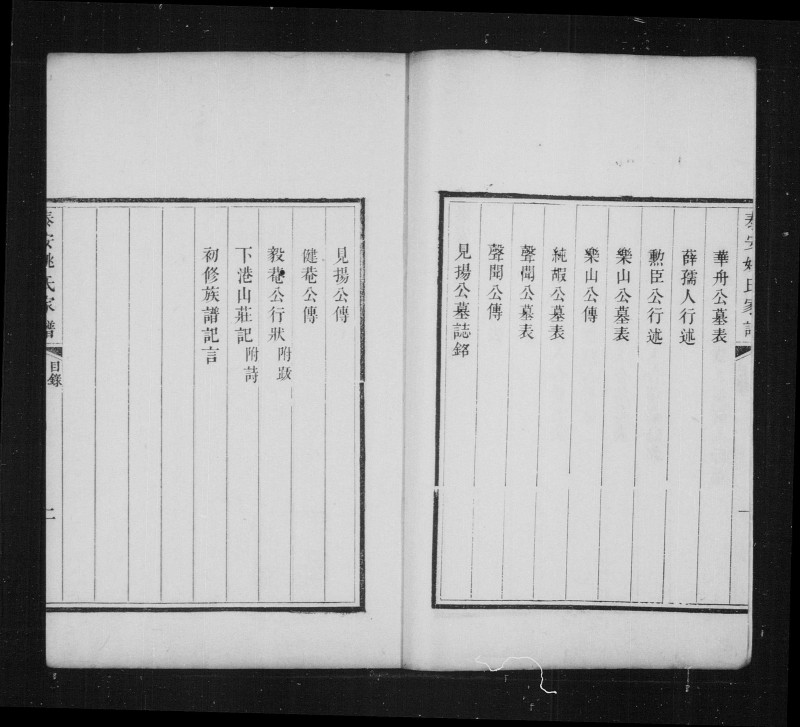 泰安姚氏家譜
華舟公墓表
薛孺人行述
勲臣公行述
樂山公墓表
樂山公傳
純嘏公墓表
聲聞公墓表
聲聞公傳
見揚公墓誌銘
見揚公傳
健菴公傳
毅菴公行狀 附跋
下港山莊記 附詩
初修族譜記言
泰安姚氏家譜
目錄
二